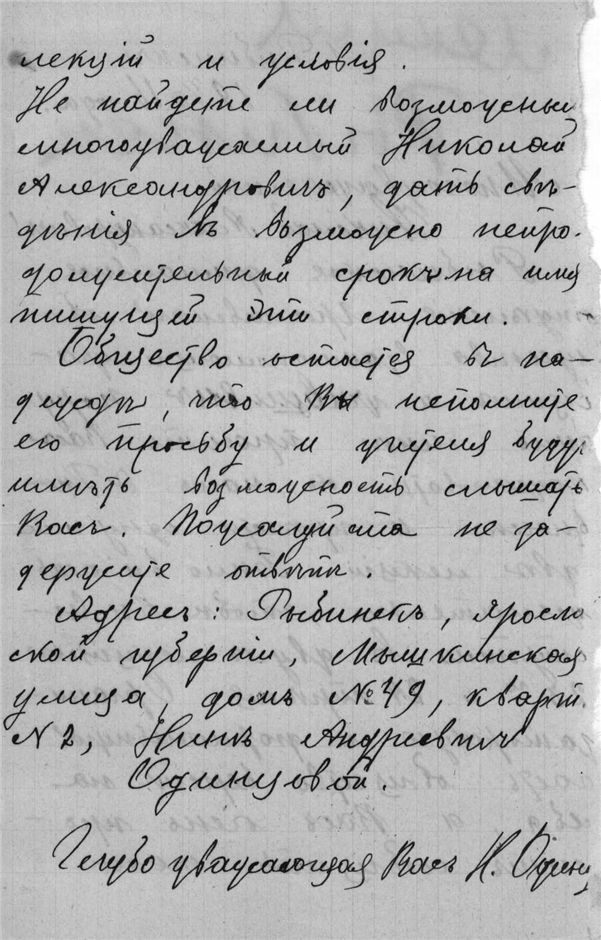 лекцій и условія.
Не найдете ли возможным
многоуважаемый Николай
Александровичъ, дать свѣ-
дѣнія въ возможно непро-
должительный срокъ на имя
пишущей эти строки.
Общество остается въ на-
деждѣ, что Вы исполните
его просьбу и учителя будут
имѣть возможность слышать
Васъ. Пожалуйста не за-
держите отвѣтъ.
Адресъ: Рыбинскъ, яросла
ской губерніи, Мышкинская
улица, домъ №49, кварт.
N 2, Нинѣ Андреевнѣ
Одинцовой.
Глубо уважающая Васъ Н. Один